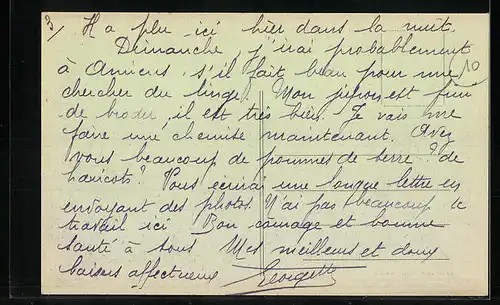 3/ Il a plu ici hier dans la nuit.
Dimanche, j'irai probablement
à Amiens, s'il fait beau pour me 10
chercher du linge. Mon jupon est fini
de broder, il est très bien. Je vais me
faire une chemise maintenant. Avez
vous beaucoup de pommes de terre? de
haricots? Vous écrirai une longue lettre en
envoyant des photos. N'ai pas beaucoup de
travail ici. Bon courage et bonne
santé à tous. Mes meilleurs et doux
baisers affectueux Georgette